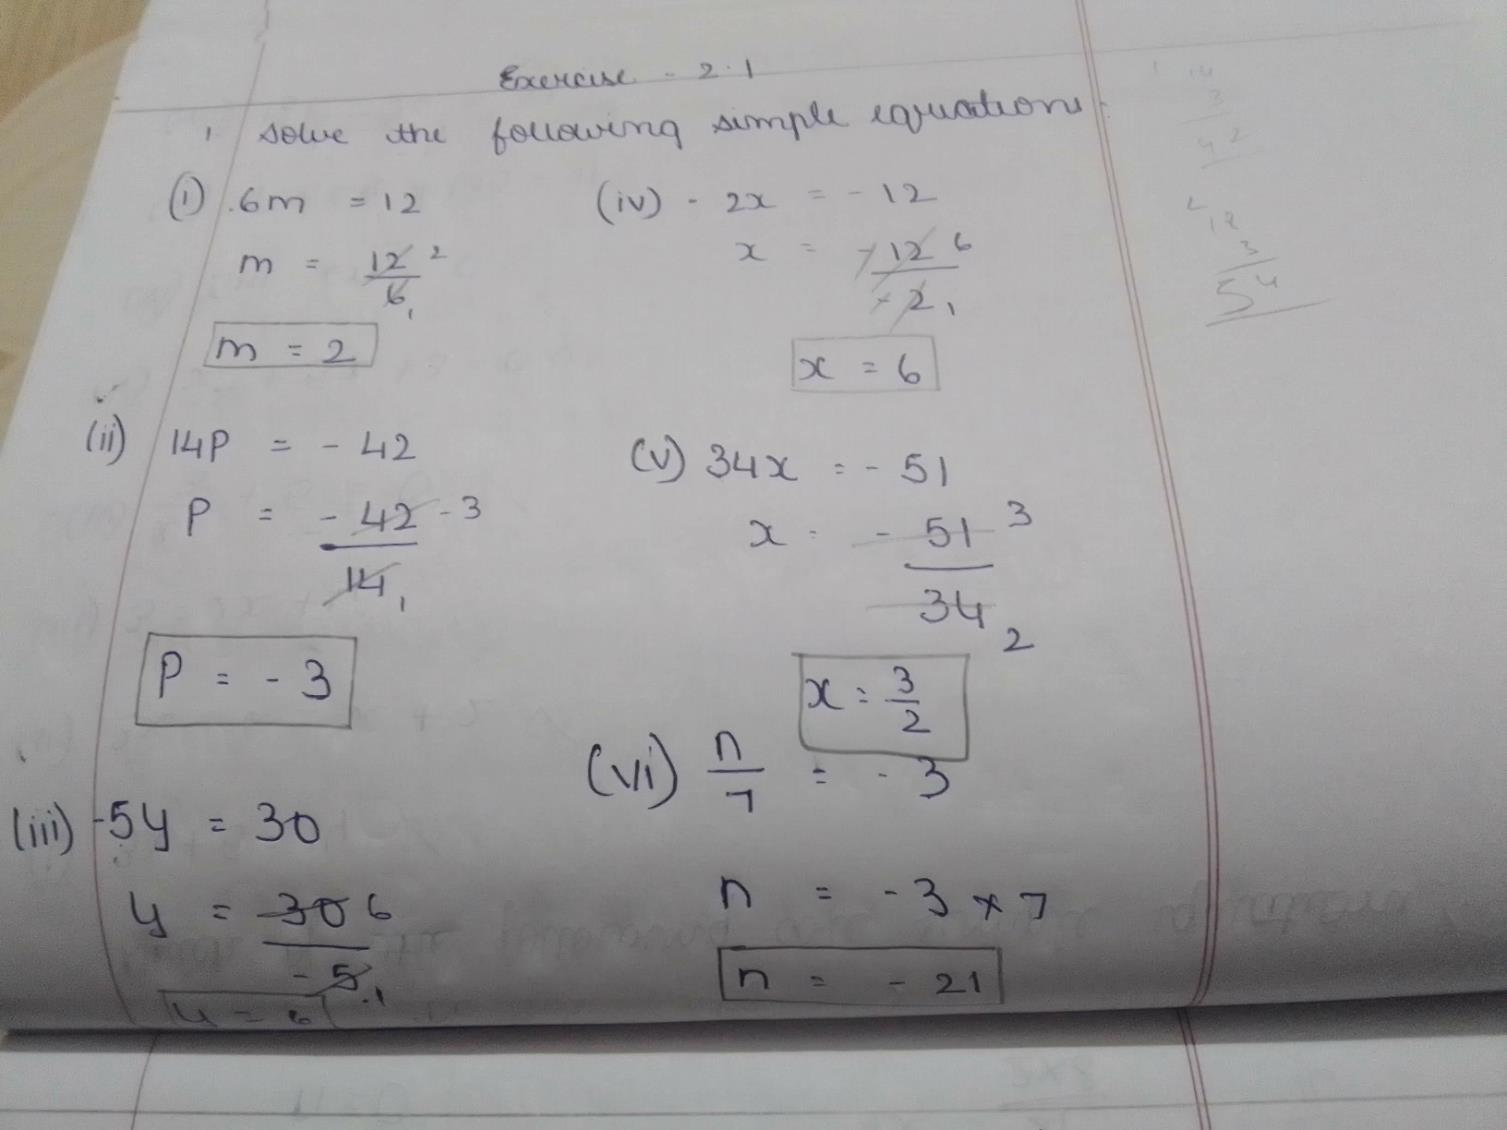 Exercise - 2.1
1 solve the following simple equations.
(i) 6m = 12
m = 12 2
6 1
m = 2
(ii) 14P = - 42
P = - 42 - 3
14 1
P = - 3
(iii) -5y = 30
y = 30 6
- 5 1
y = 6
(iv) - 2x = - 12
x = - 12 6
- 2 1
x = 6
(v) 34x = - 51
x = - 51 3
34 2
x = 3/2
(vi) n/7 = - 3
n = - 3 × 7
n = - 21
14
3
4 2
18
3
5 4